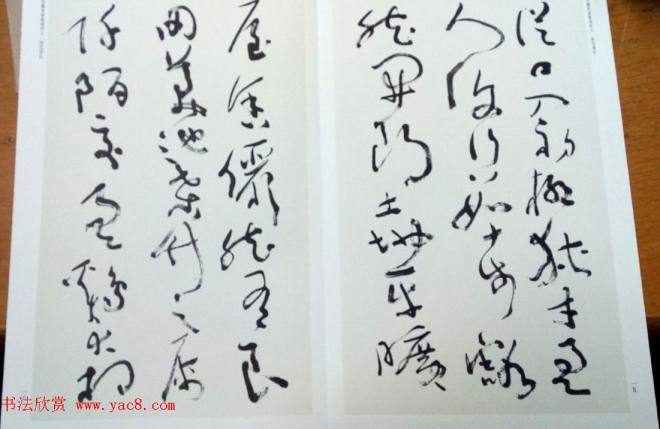 從口入初極狹才通
人復行數十步豁
然開朗土地平曠
屋舍儼然有良
田美池桑竹之屬
阡陌交通雞犬相
书法欣赏 www.yac8.com